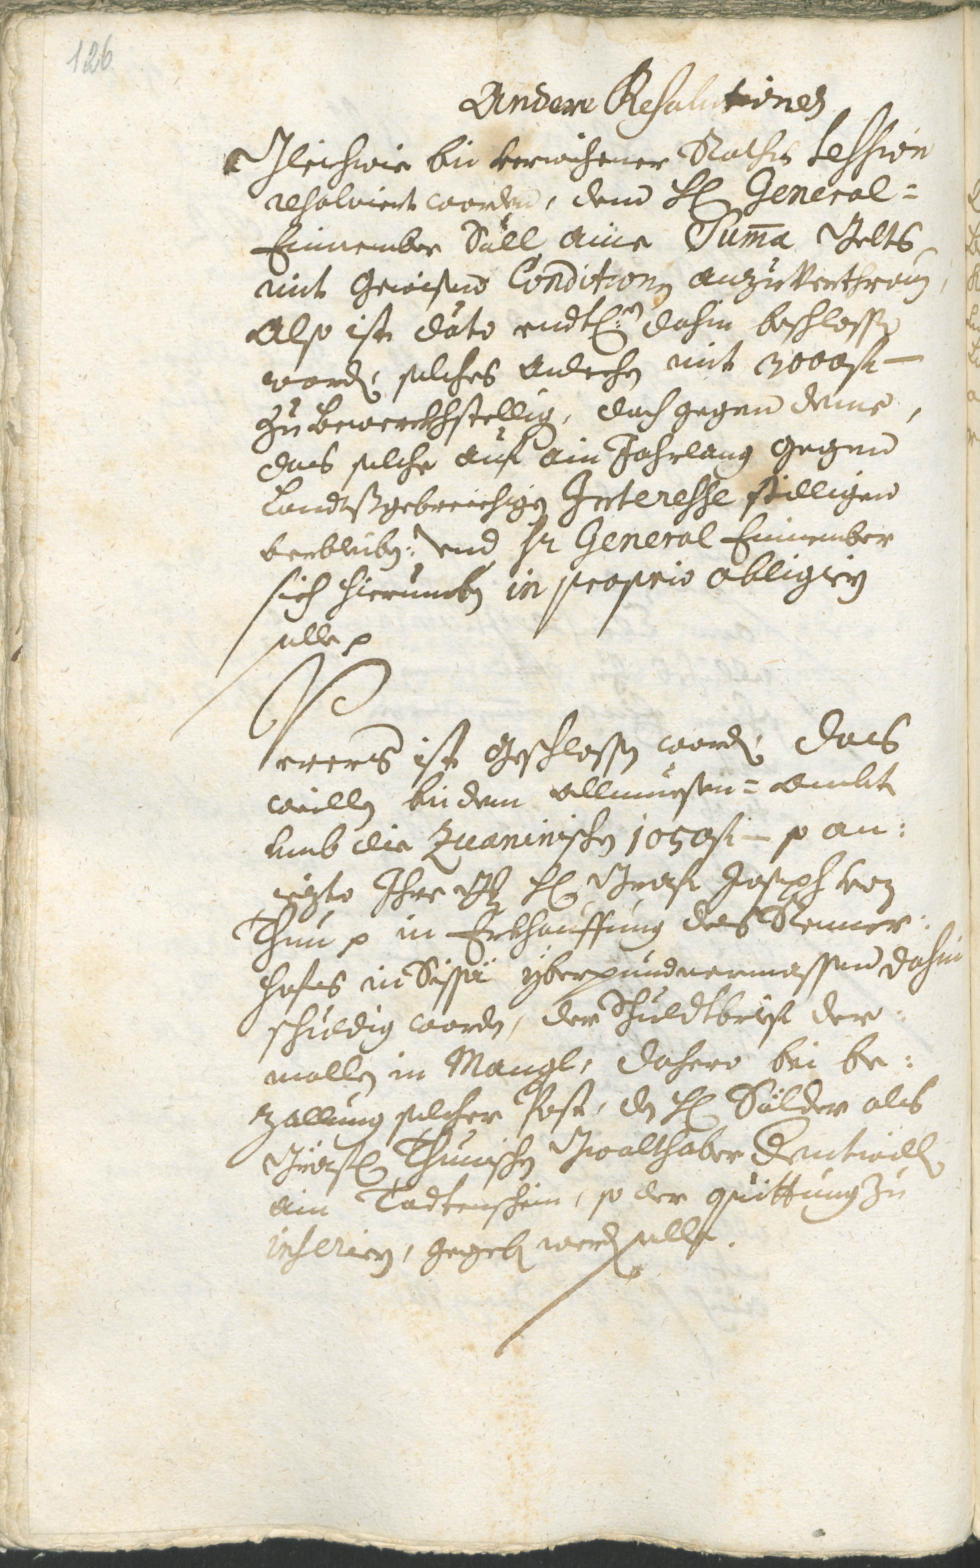 126
Andere Resolutiones
Gleichwie bei verwichener Raths Session
resolviert worden, dem H: General=
Einnember Söll aine Suma Gelts
mit gewissen Condition anzuverthrauen,
Also ist dato endtl: dahin beschlossen
worden, solches anlechen mit 3000 fl —
zu bewerckhstellig, doch gegen deme,
das solche auf ain Jahrlang gegen
Landtsgebreichigen Interesse stilligen
verbleiben: und Hr General Einnember
sich hierumben in proprio obligieren
solle p
Ferers ist geschlossen worden, das
weillen bei dem Allmuesen=Ambt
umb die Zuaninischen 1050 fl — so an:
iezto Ihr H: Graf Joseph von
Thun p in Erkhauffung des Renner:
hofes in Sissän yberpundnermassen dahin
schuldig worden, der Schuldtbrief der:
mallen in Mangl, dahero bei be:
zallung solcher Post, dem H: Sölder als
Gräfl: Thunischen Gwalthaber
ain Todtenschein, so der quittung zu
inserieren, gegeben werden solle.